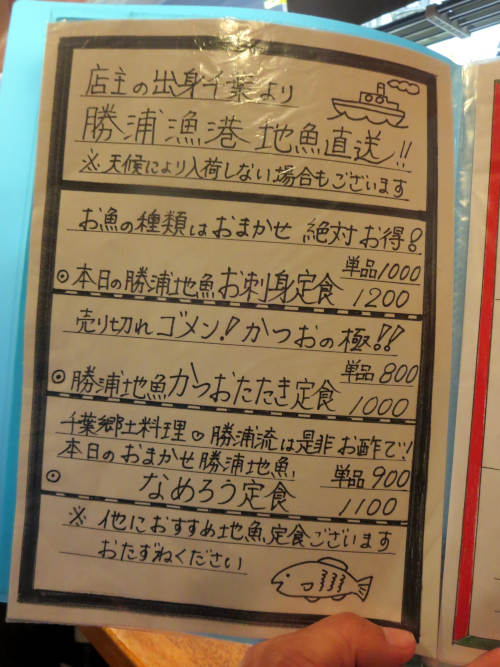 店主の出身千葉より
勝浦漁港 地魚直送!!
※天候により入荷しない場合もございます
お魚の種類はおまかせ 絶対お得!
単品1000
◎本日の勝浦地魚お刺身定食 1200
売り切れゴメン!かつおの極!!
単品800
◎勝浦地魚かつおたたき定食 1000
千葉郷土料理♡勝浦流は是非お酢で!!
本日のおまかせ勝浦地魚 単品900
◎ なめろう定食 1100
※ 他におすすめ地魚定食ございます
おたずねください